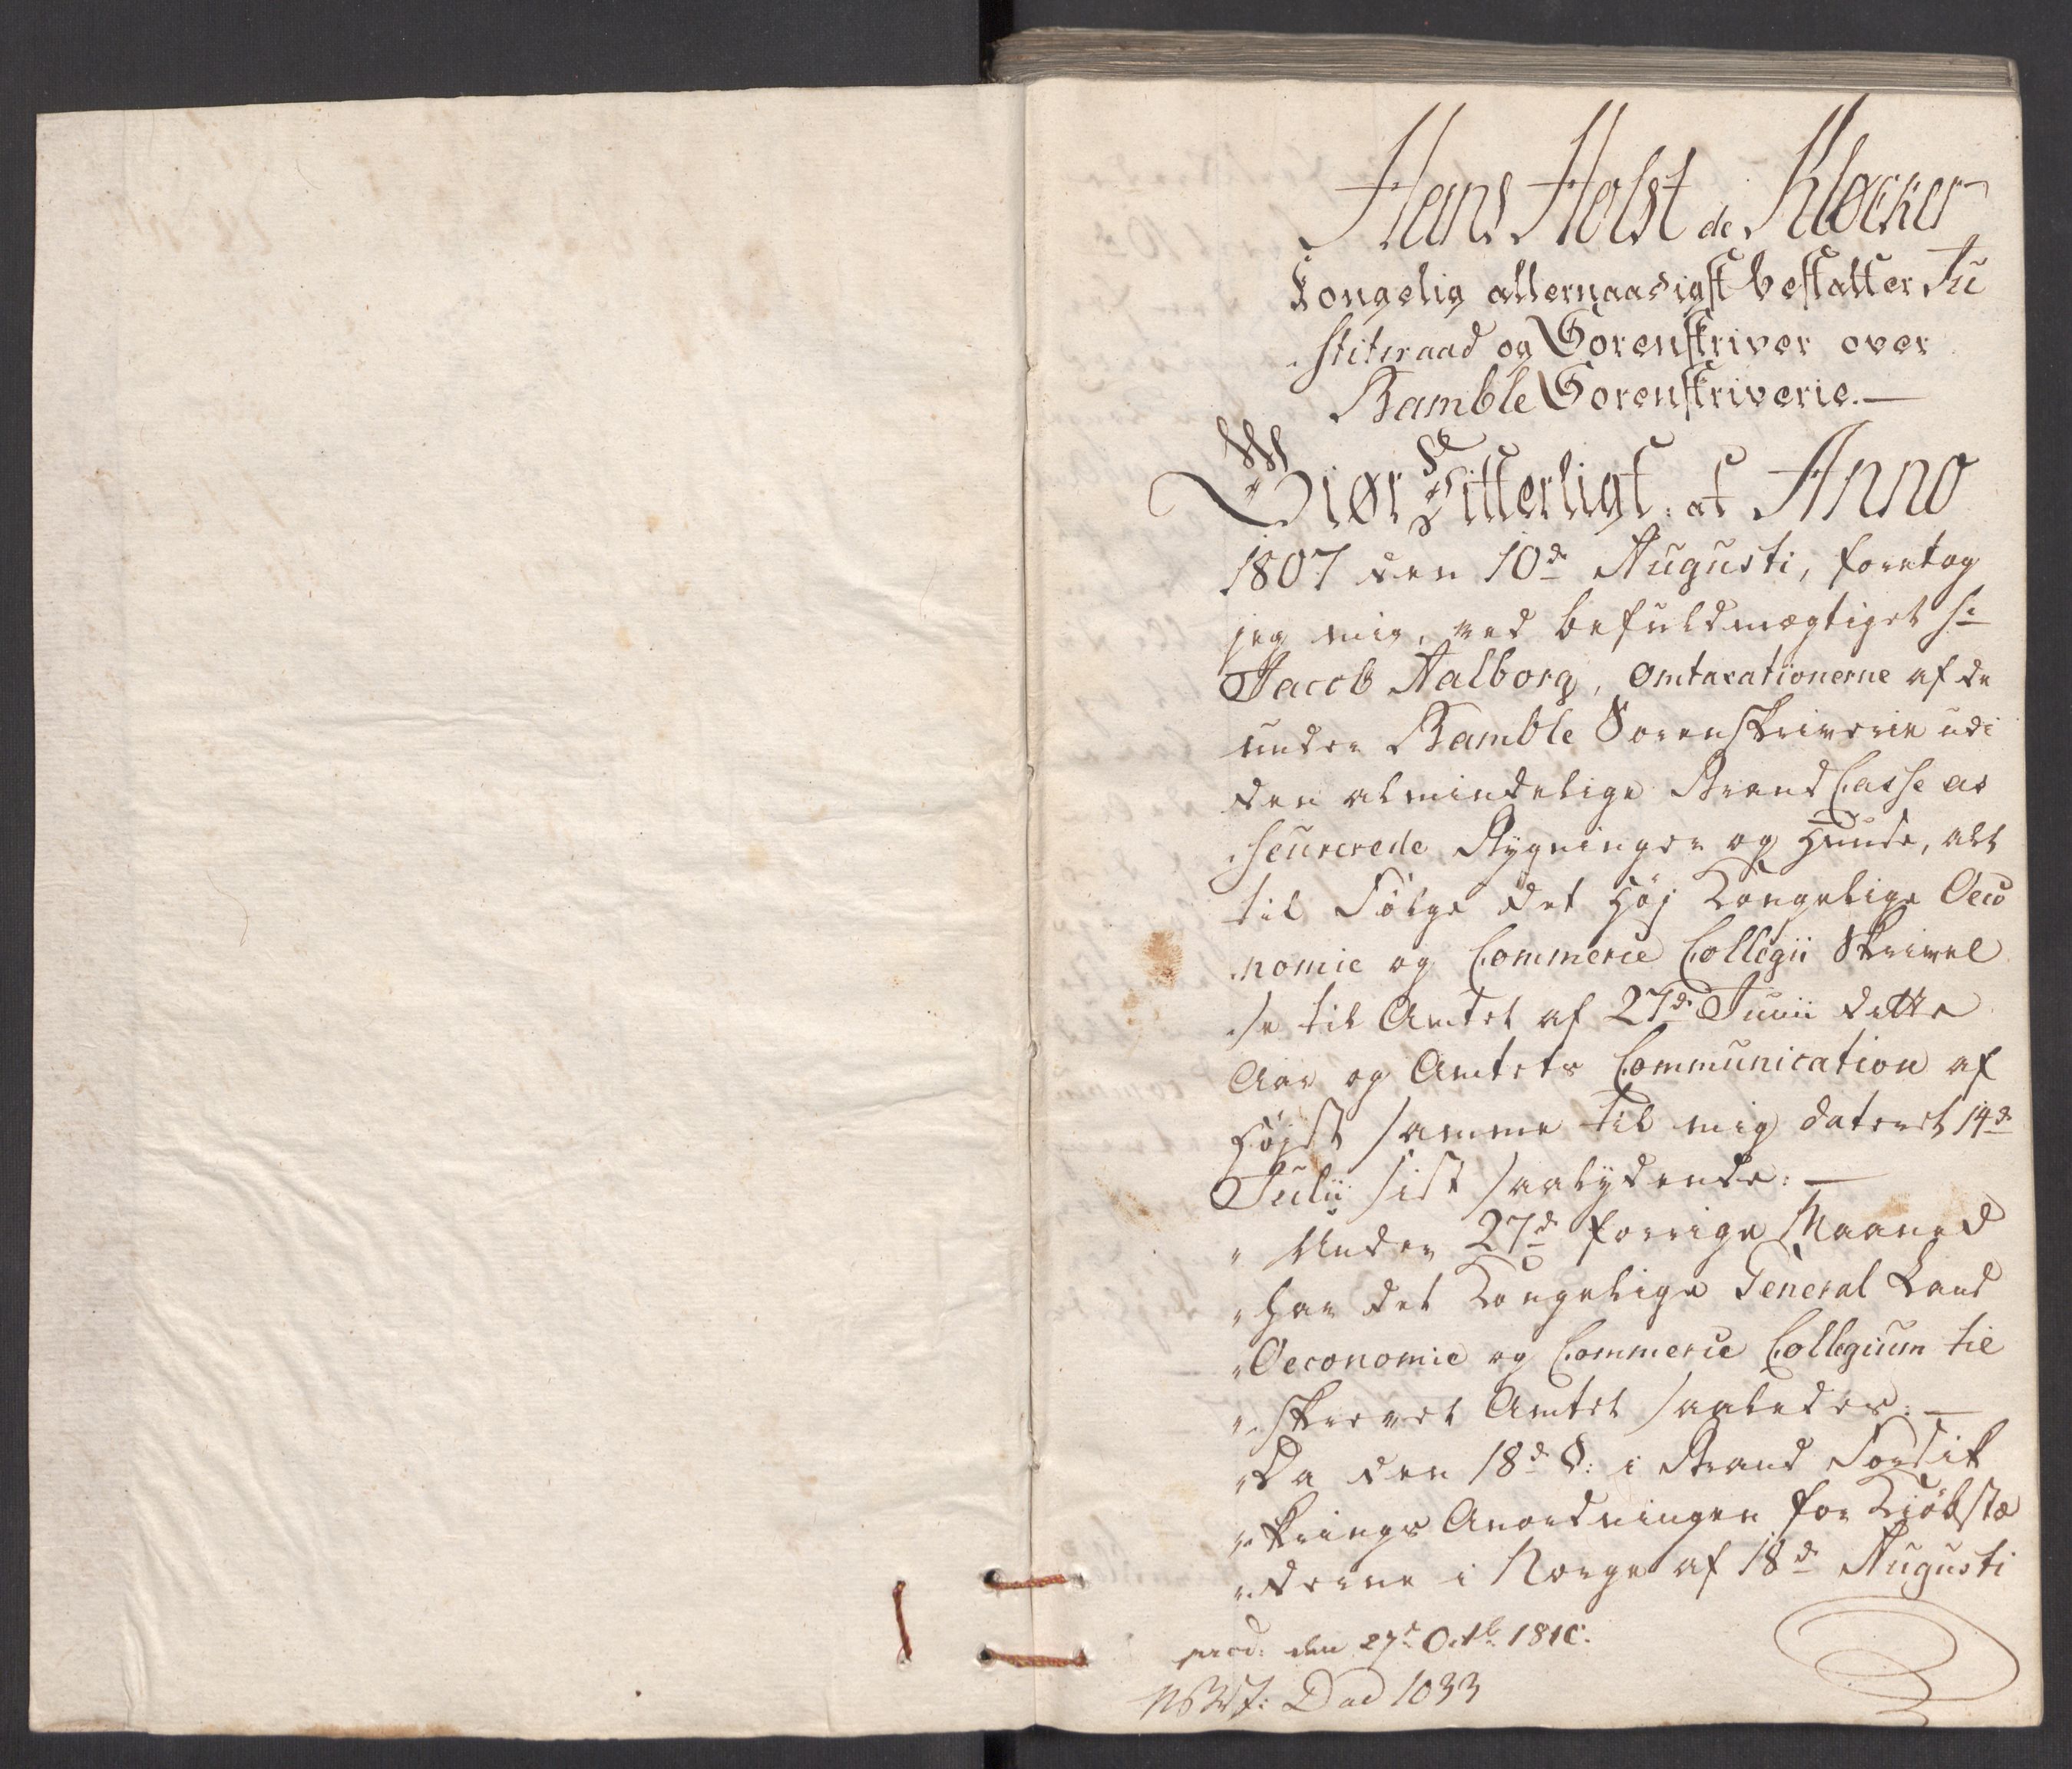 Hans Holst de Kløcker
Kongelig allernaadigst bestalter Ju
stitsraad og Sorenskriver over
Bamble Sorenskriverie. —
Giør Vitterligt: at Anno
1807 den 10de Augusti, foretog
jeg mig, ved befuldmægtiget Sr
Jacob Aalborg, Omtaxationerne af de
under Bamble Sorenskriverie udi
den almindelige Brand Casse as
seurerede Bygninger og Huuse, alt
til Følge det Høj Kongelige Oeco
nomie og Commerce Collegii Skrivel
se til Amtet af 27de Junii dette
Aar og Amtets Communication af
Højst samme til mig dateret 14de
Julii sidst saalydende: —
" Under 27de forrige Maaned
" har det Kongelige General Land
" Oeconomie og Commerce Collegium til
" skrevet Amtet saaledes: —
" Da den 18de §: i Brand Forsik
" krings Anordningen for Kiøbstæ
" derne i Norge af 18de Augusti
prod: den 27de Octbr 1810.
1033